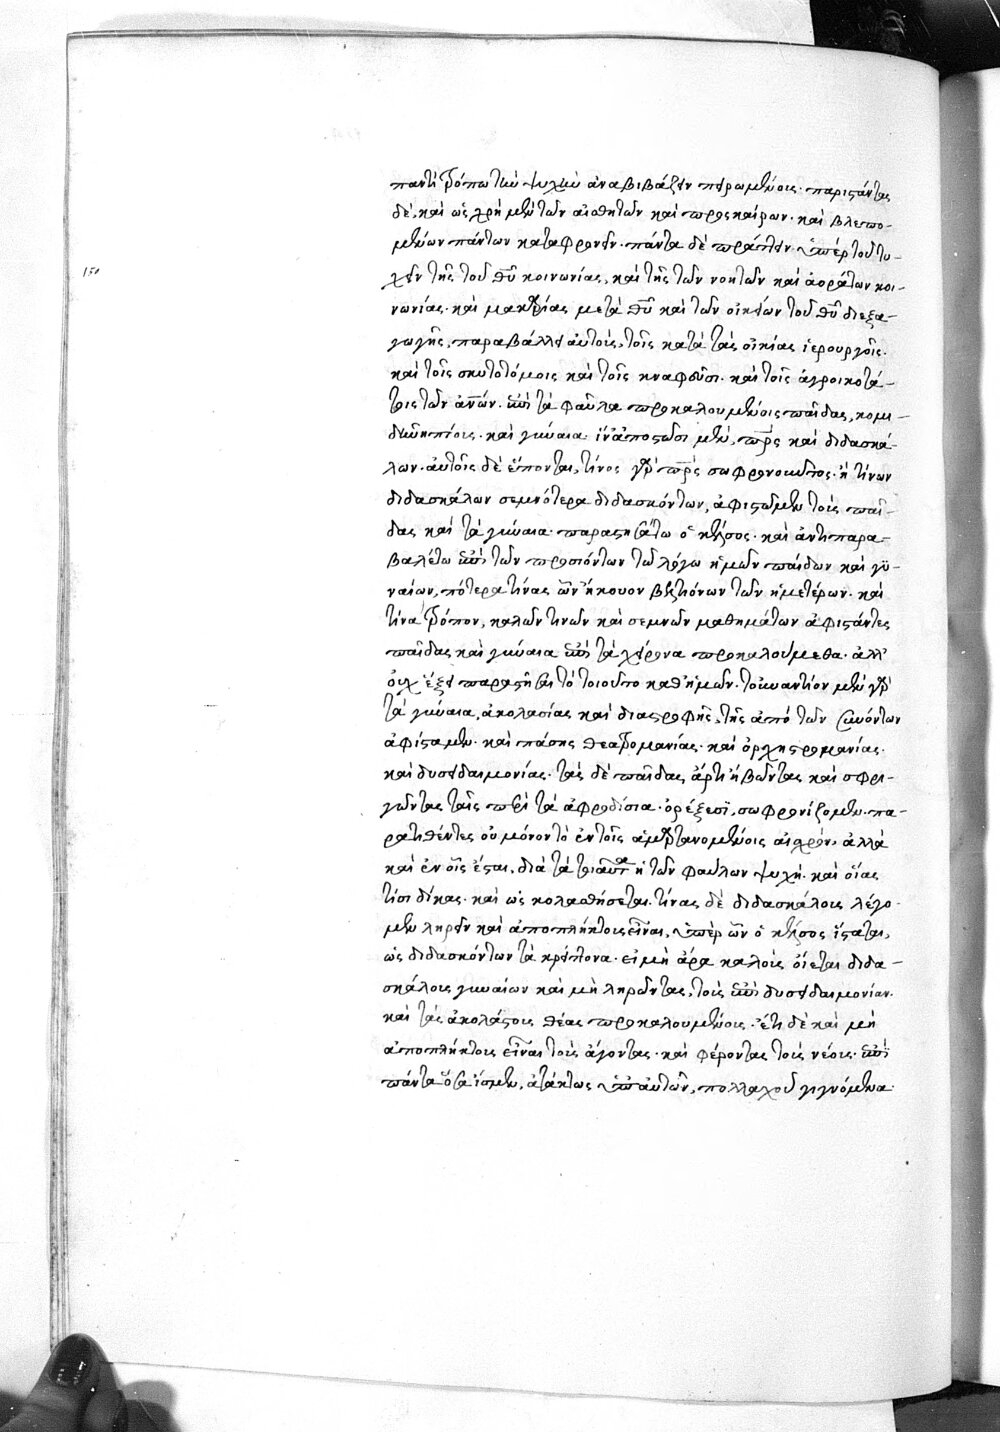 παντὶ τρόπω τὴν ψυχὴν ἀναβιβάζειν πειρωμένοις· παριστάντας
δὲ, καὶ ὡς χρὴ μὲν τῶν αἰσθητῶν καὶ προσκαίρων· καὶ βλεπο-
μένων πάντων καταφρονεῖν· πάντα δὲ πράττειν ὑπὲρ τοῦ τυ-
150
χεῖν τῆς τοῦ θῦ κοινωνίας, καὶ τῆς τῶν νοητῶν καὶ ἀοράτων κοι-
νωνίας· καὶ μακαρίας μετὰ θῦ καὶ τῶν οἰκείων τοῦ θῦ διεξα-
γωγῆς, παραβάλλει αὐτοὺς, τοῖς κατὰ τὰς οἰκίας ἱερουργοῖς·
καὶ τοῖς σκυτοτόμοις καὶ τοῖς κναφεῦσι· καὶ τοῖς ἀγροικοτά-
τοις τῶν ἀνῶν· ἐπὶ τὰ φαῦλα προκαλουμένοις παῖδας, κομι-
δῆ νηπίους· καὶ γύναια ἵν' ἀποστῶσι μὲν, πρς καὶ διδασκά-
λων· αὐτοῖς δὲ ἕπονται, τίνος γὰρ πρς σωφρονοῦντος· ἢ τίνων
διδασκάλων σεμνότερα διδασκόντων, ἀφιστῶμεν τοὺς παῖ-
δας καὶ τὰ γύναια· παραστησάτω ὁ κέλσος· καὶ ἀντιπαρα-
βαλέτω ἐπὶ τῶν προσιόντων τῶ λόγω ἡμῶν παίδων καὶ γυ-
ναίων, πότερα τίνας ὧν ἤκουον βελτιόνων τῶν ἡμετέρων· καὶ
τίνα τρόπον, καλῶν τινῶν καὶ σεμνῶν μαθημάτων ἀφιστάντες
παῖδας καὶ γύναια ἐπὶ τὰ χείρονα προκαλούμεθα· ἀλλ'
οὐχ ἕξει παραστῆσαι τὸ τοιοῦτο καθ' ἡμῶν· τοὐναντίον μὲν γὰρ
τὰ γύναια, ἀκολασίας καὶ διαστροφῆς, τῆς ἀπὸ τῶν συνόντων
ἀφίσταμεν· καὶ πάσης θεατρομανίας· καὶ ὀρχηστρομανίας·
καὶ δυσειδαιμονίας· τὰς δὲ παῖδας, ἄρτι ἡβῶντας καὶ σφρι-
γῶντας ταῖς περὶ τὰ ἀφροδίσια· ὀρέξεσϊ, σωφρονίζομεν· πα-
ρατιθέντες οὐ μόνον τὸ ἐν τοῖς ἁμαρτανομένοις αἰσχρόν, ἀλλὰ
καὶ ἐν οἷς ἔσται, διὰ τὰ τοιαῦτα ἡ τῶν φαύλων ψυχή· καὶ οἵας
τίσει δίκας· καὶ ὡς κολασθήσεται· τίνας δὲ διδασκάλους λέγο-
μεν ληρεῖν καὶ ἀποπλήκτους εἶναι, ὑπὲρ ὧν ὁ κέλσος ἵσταται,
ὡς διδασκόντων τὰ κρείττονα· εἰ μὴ ἄρα καλοὺς οἴεται διδα-
σκάλους γυναίων καὶ μὴ ληρῶντας, τοὺς ἐπὶ δυσειδαιμονίαν·
καὶ τὰς ἀκολάστους θέας προκαλουμένους· ἔτι δὲ καὶ μὴ
ἀποπλήκτους εἶναι τοὺς ἄγοντας· καὶ φέροντας τοὺς νέους· ἐπὶ
πάντα ὅσα ἴσμεν, ἀτάκτως ὑπ' αὐτῶν, πολλαχοῦ γιγνόμενα·